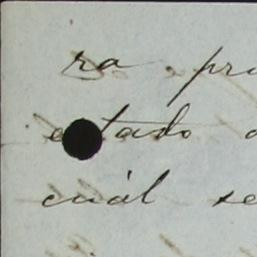 ra pri
estado
cuál se